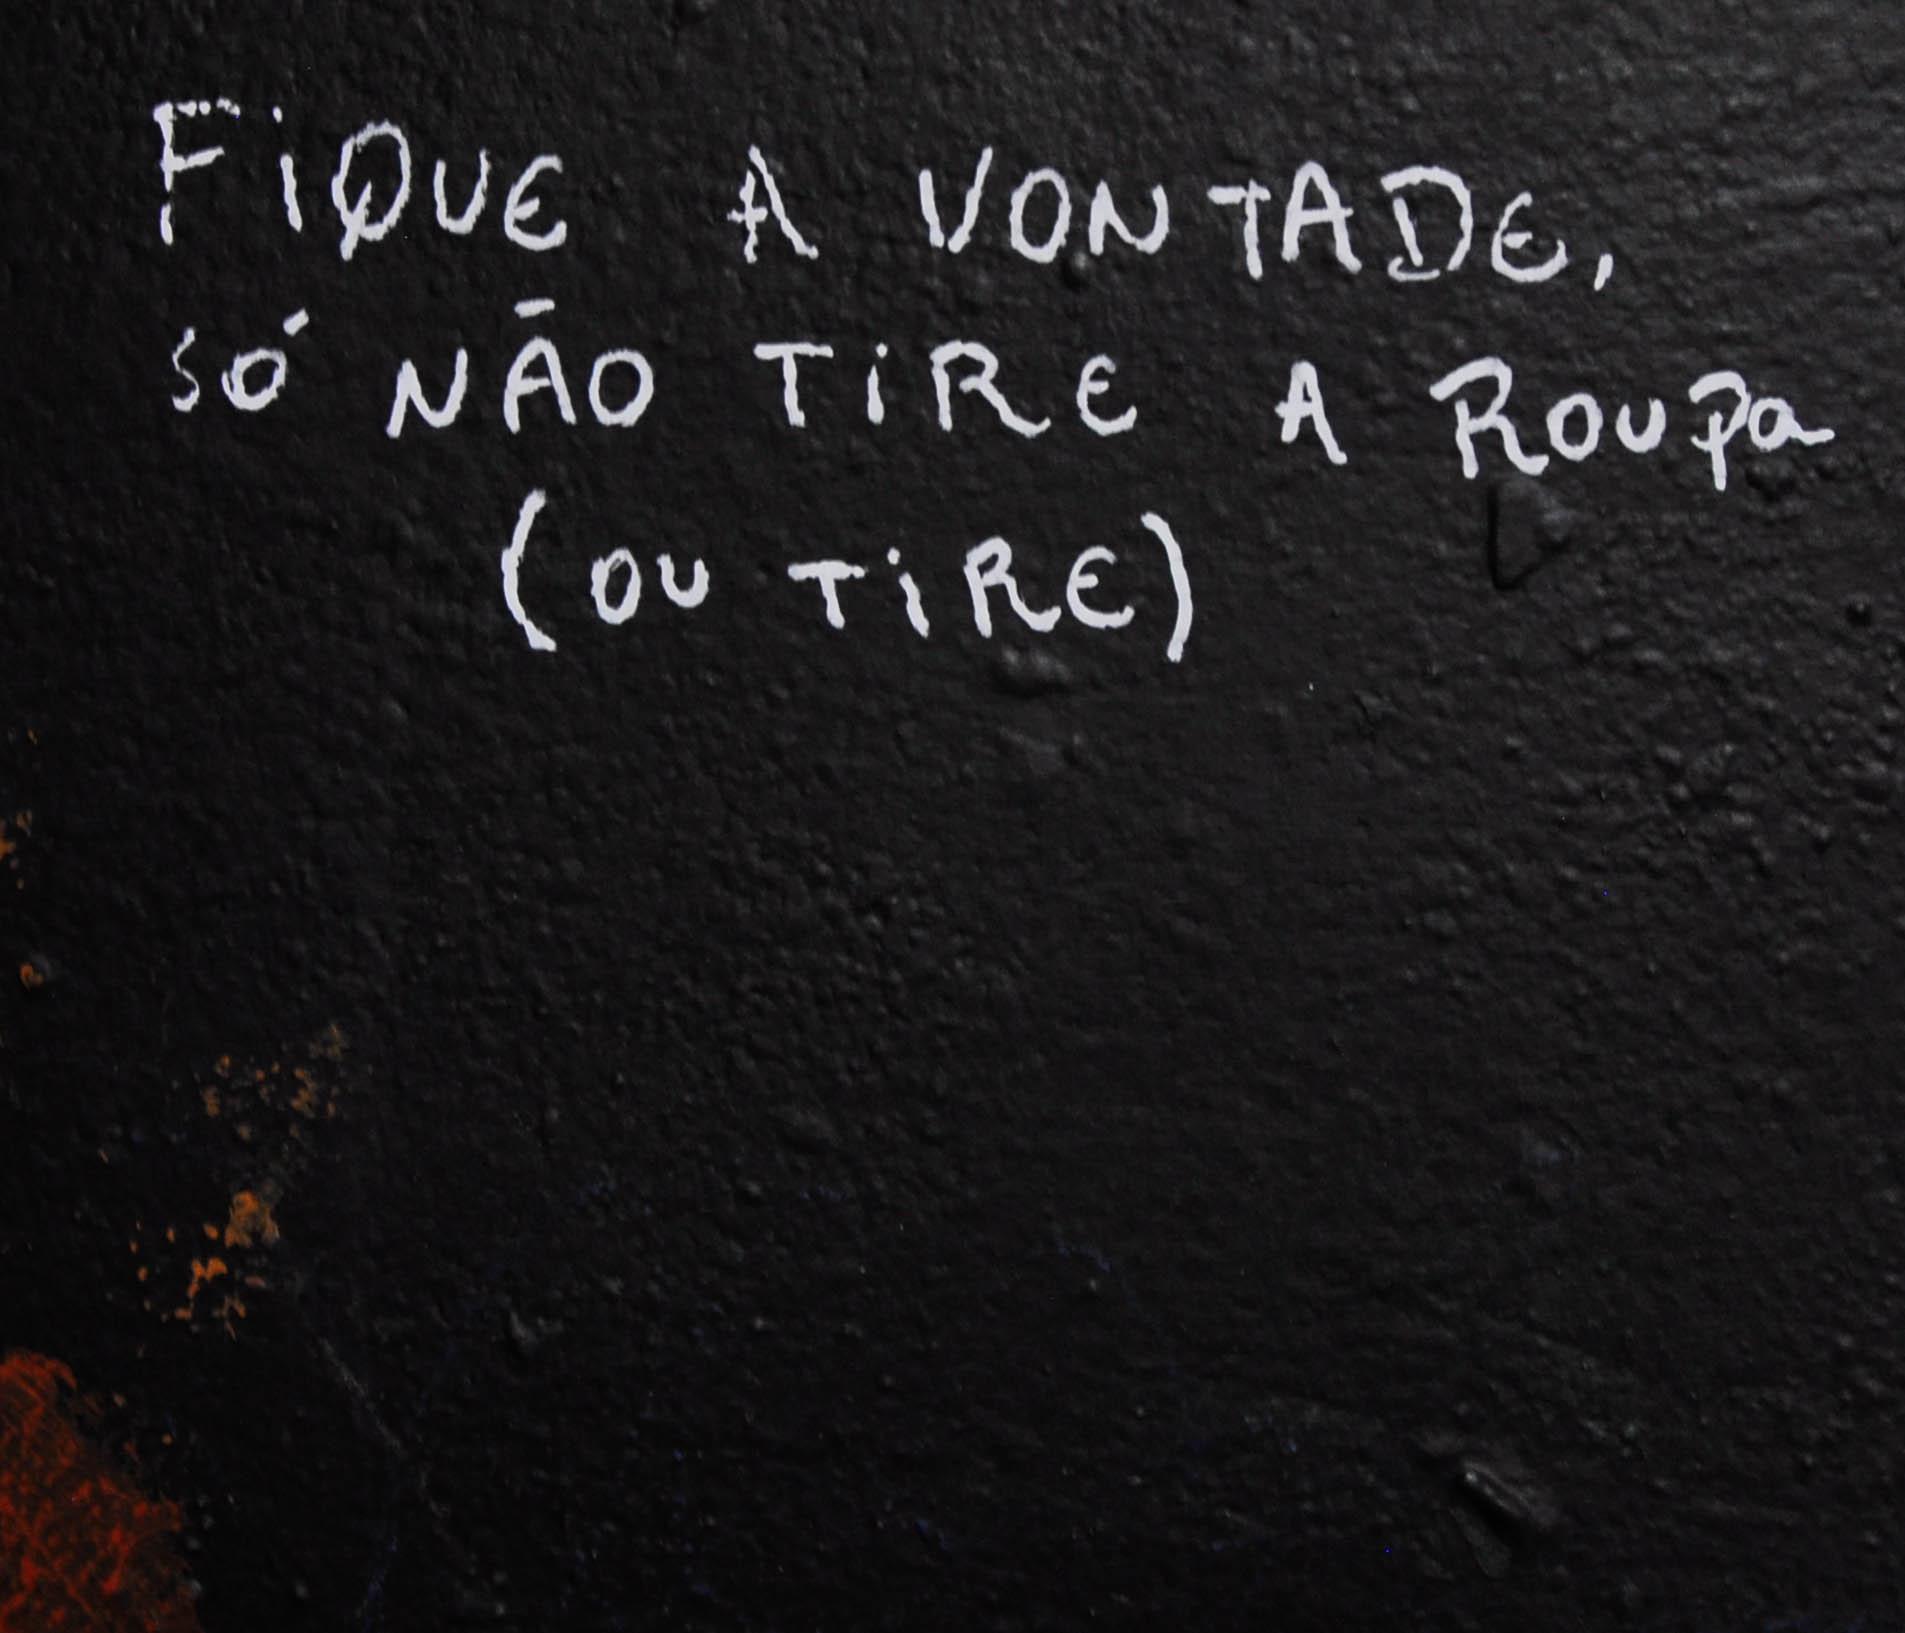 FiQUE A VONTADE,
SÓ NÃO TiRE A ROUPa
(OU TiRE)